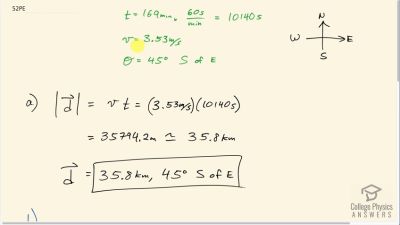 52PE
t = 169 min · 60s/min = 10140s
v = 3.53 m/s
θ = 45° S of E
N
W E
S
a) |d⃗| = v t = (3.53 m/s)(10140s)
= 35794.2m ≃ 35.8 km
d⃗ = 35.8 km, 45° S of E
College Physics
ANSWERS